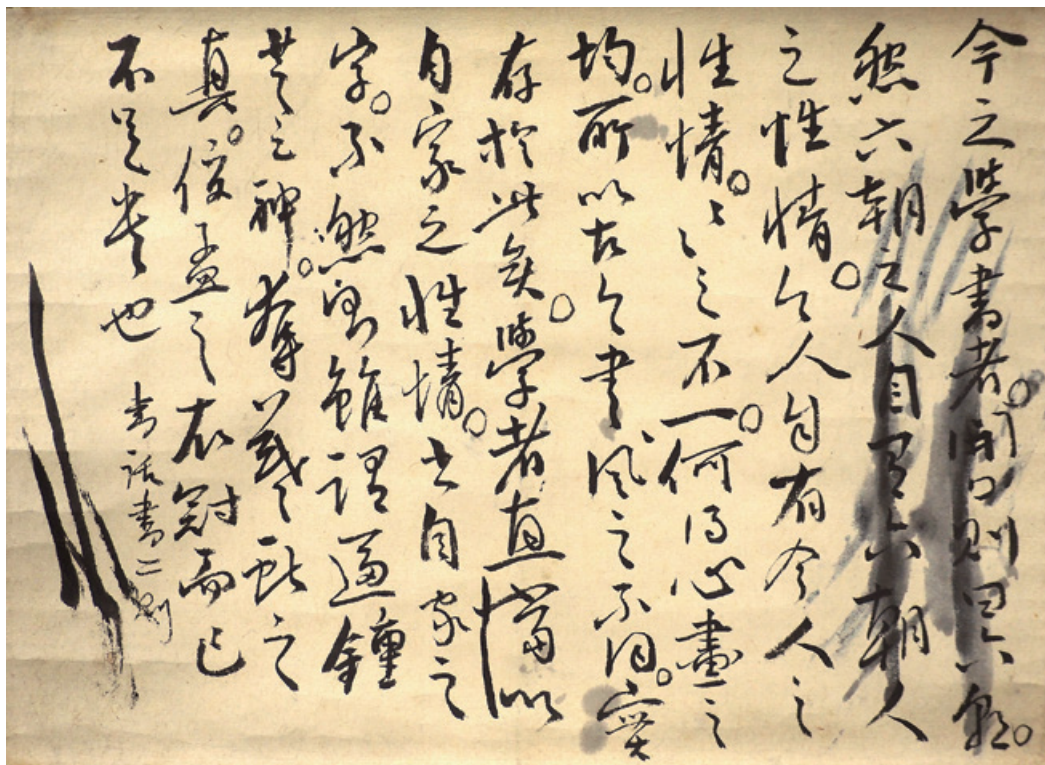 今之學書者。開口則曰六朝。
然六朝之人自有六朝人
之性情。今人自有今人之
性情。〻〻之不一。何得心畫之
均。所以古今書風之不同。實
存於此矣。學者直當以
自家之性情。書自家之
字。不然則雖謂逼鍾
芝之神。奪羲獻之
真。優孟之衣冠而已
不足貴也
書話書二則